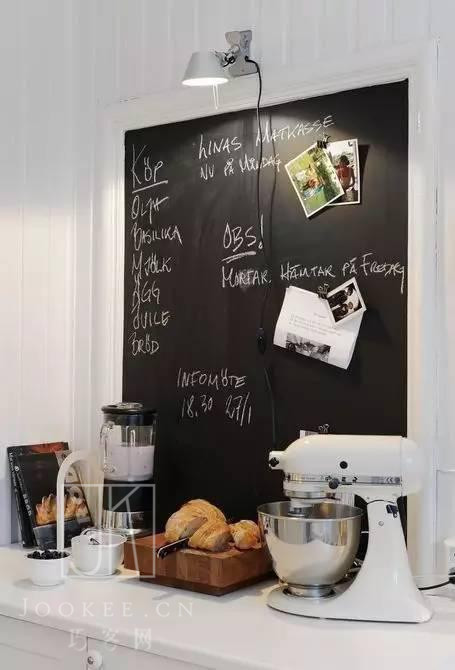 KÖP
OLJA
BASILIKA
MJÖLK
ÄGG
JUICE
BRÖD
LINAS MATKASSE
NU PÅ MÅNDAG
OBS!
MORFAR HÄMTAR PÅ FREDAG
INFOMÖTE
18.30 27/1
JK
JOOKEE.CN
巧客网